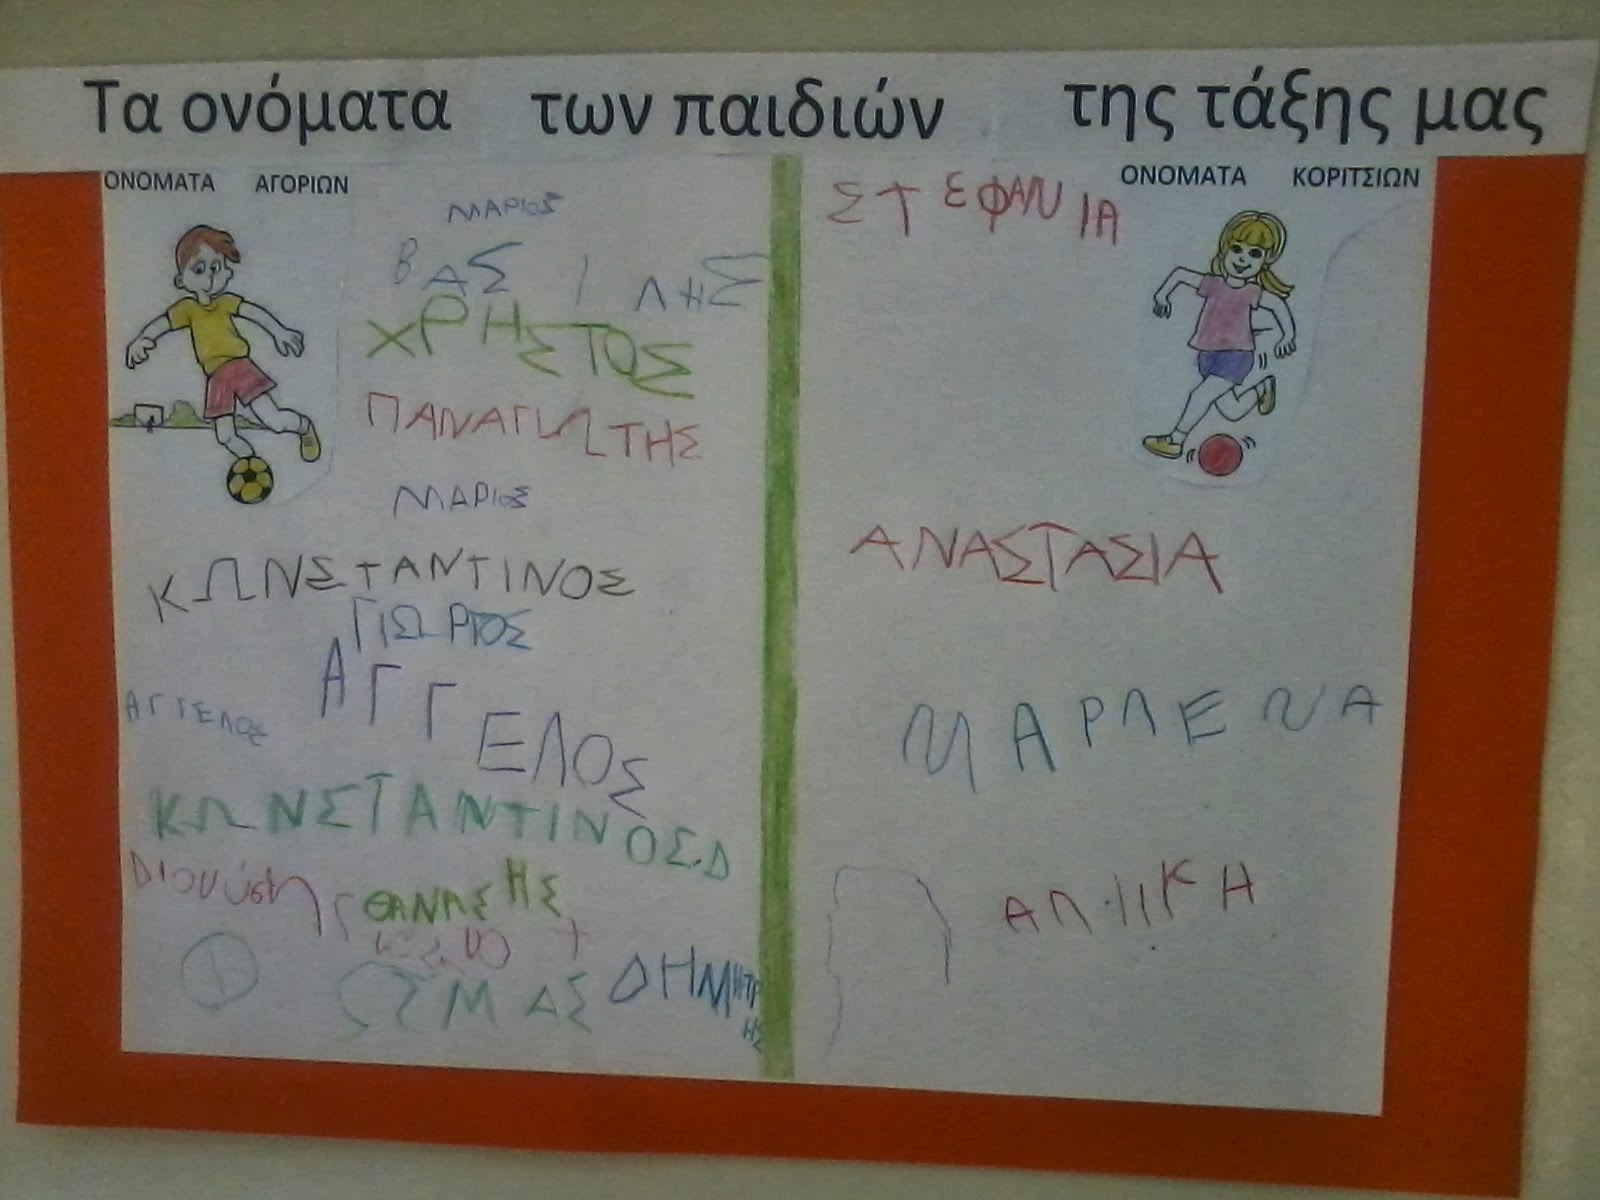 Τα ονόματα των παιδιών της τάξης μας
ΟΝΟΜΑΤΑ ΑΓΟΡΙΩΝ
ΜΑΡΙΟΣ
ΒΑΣΙΛΗΣ
ΧΡΗΣΤΟΣ
ΠΑΝΑΓΙΩΤΗΣ
ΜΑΡΙΟΣ
ΚΩΝΣΤΑΝΤΙΝΟΣ
ΓΙΩΡΓΟΣ
ΑΓΓΕΛΟΣ
ΑΓΓΕΛΟΣ
ΚΩΝΣΤΑΝΤΙΝΟΣ.Δ
Διονύσης
ΘΑΝΑΣΗΣ
ΔΗΜΗΤΡΗΣ
ΟΝΟΜΑΤΑ ΚΟΡΙΤΣΙΩΝ
ΣΤΕΦΑΝΙΑ
ΑΝΑΣΤΑΣΙΑ
ΜΑΡΛΕΝΑ